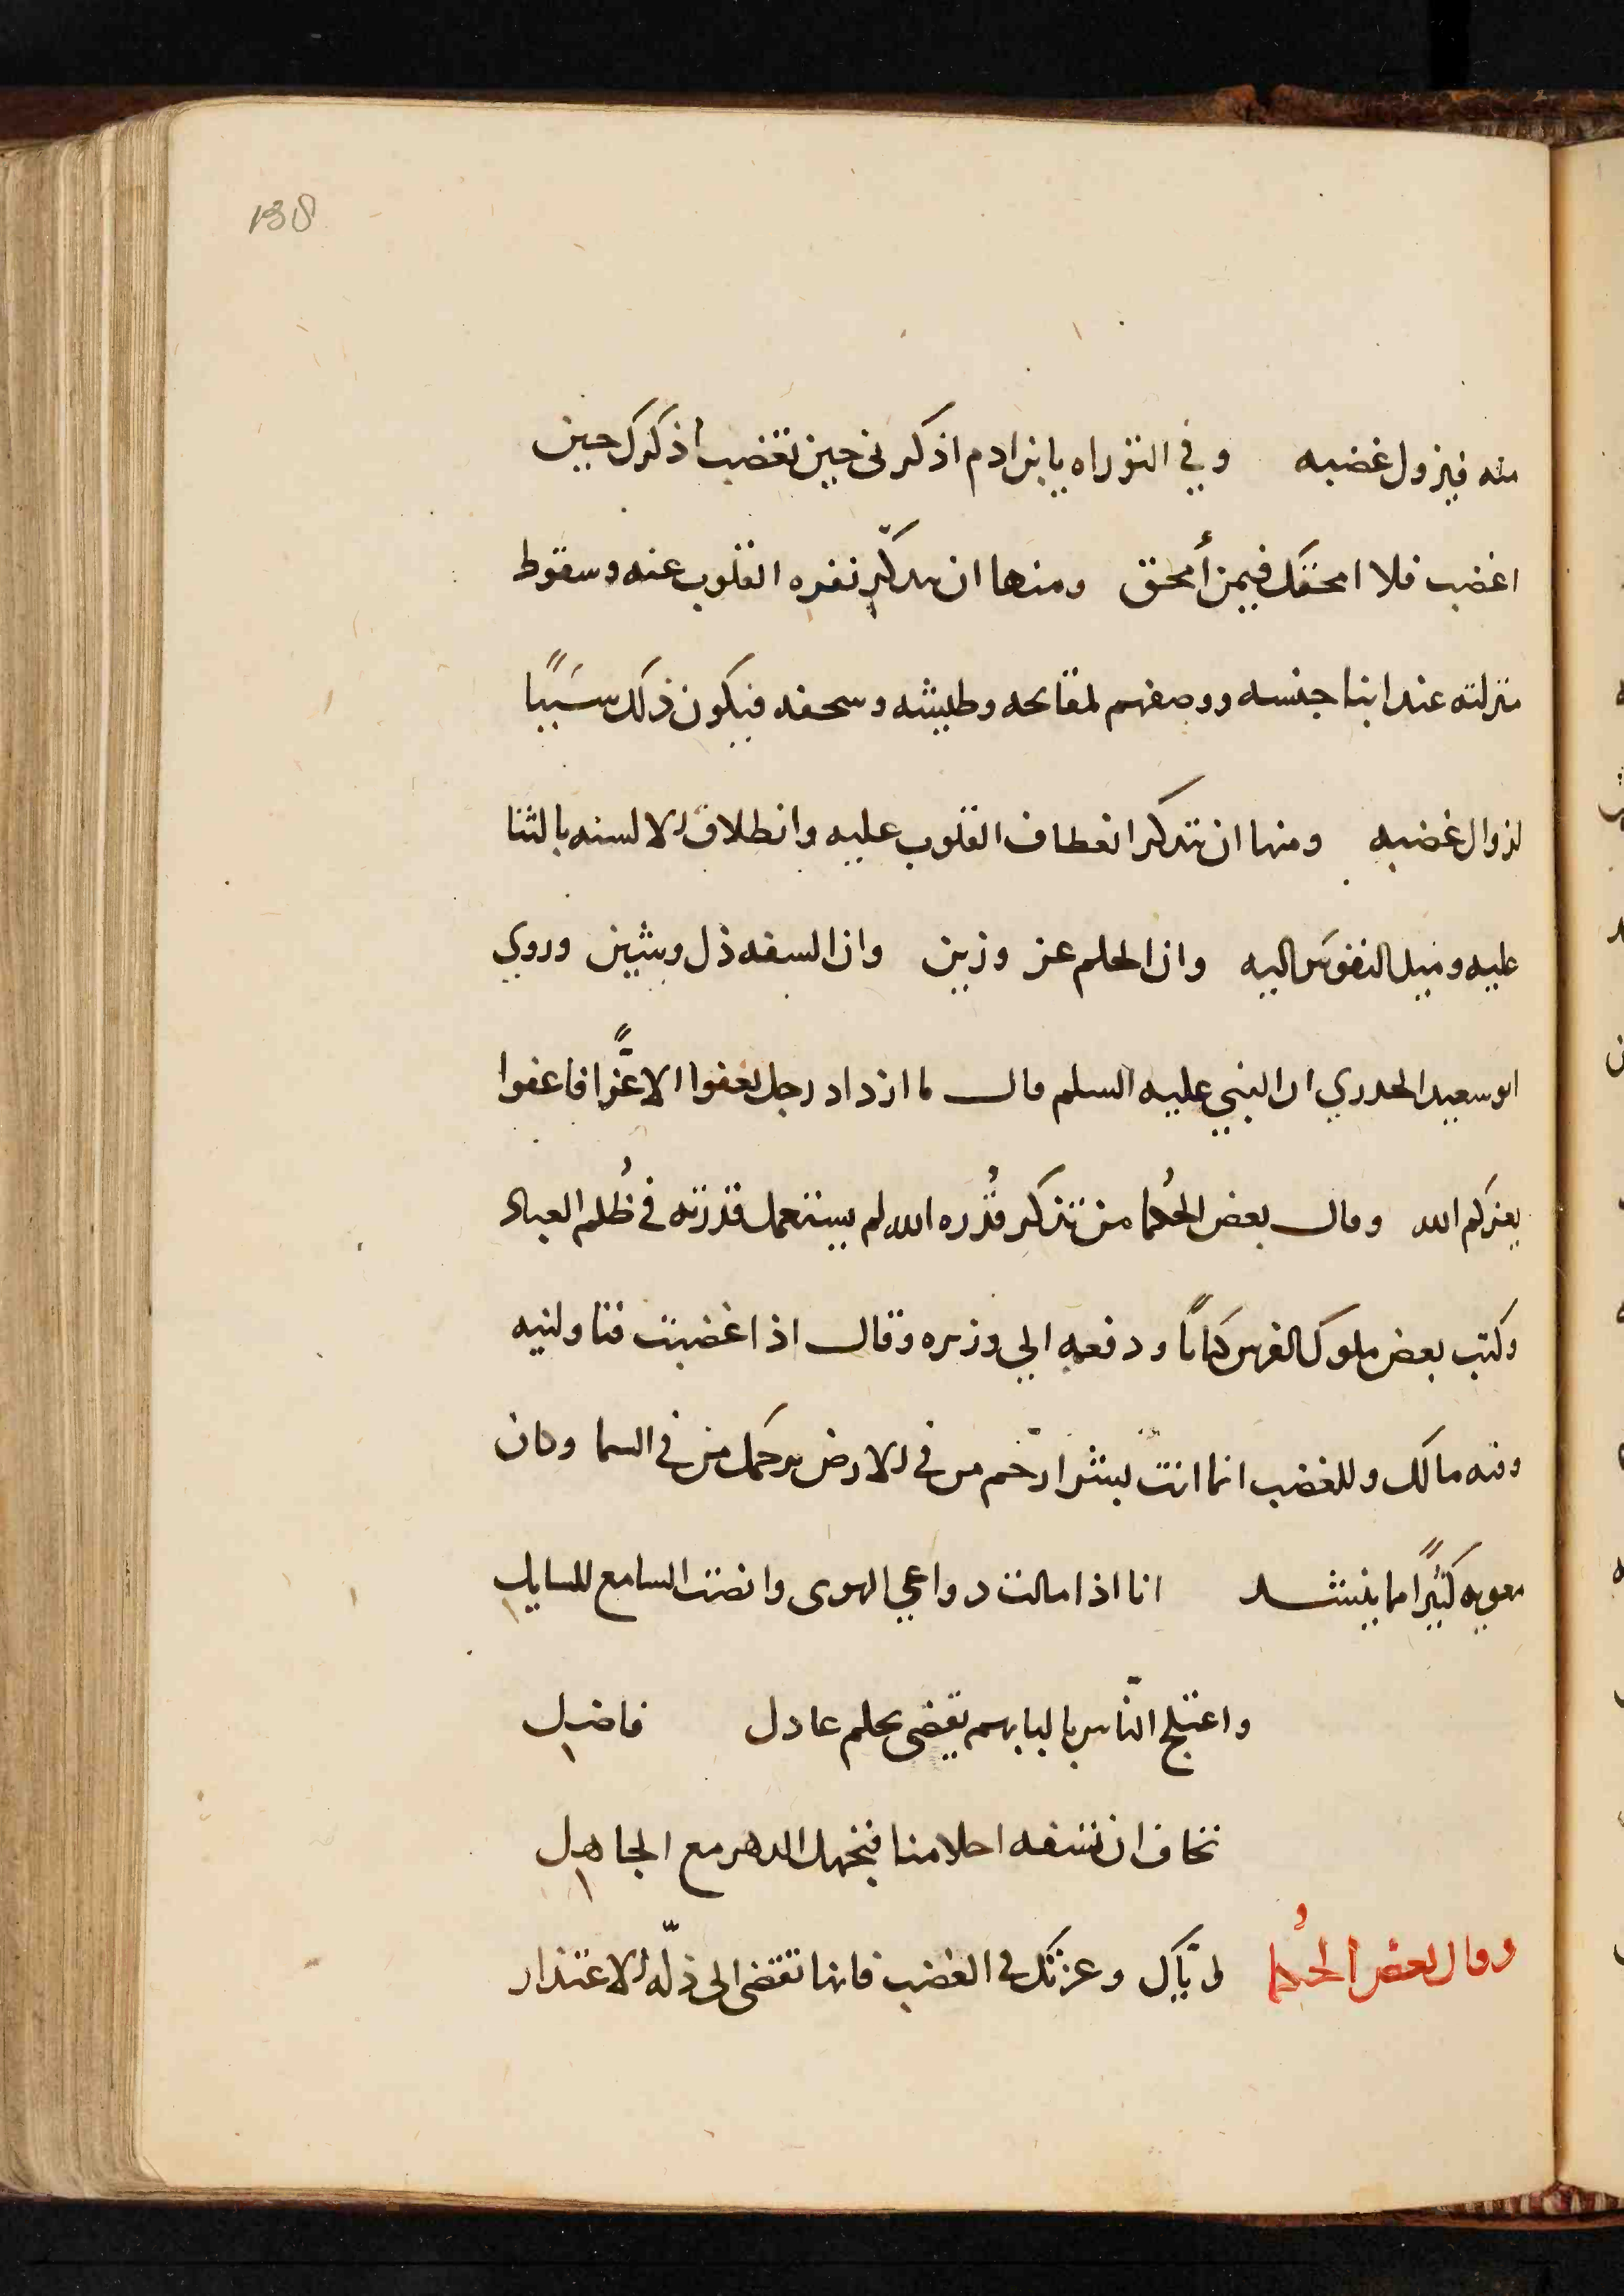 138
منه فيزول غضبه وفي التوراه يا بن ادم اذكرنى حين تغضب اذكرك حين
اغضب فلا امحقك فيمن أمحق ومنها ان يتذكّر نفره القلوب عنه وسقوط
منزلته عند ابنا جنسه ووصفهم لمقابحه وطيشه وسخفه فيكون ذلك سَببًا
لزوال غضبه ومنها ان يتذكر انعطاف القلوب عليه وانطلاق الالسنه بالثنا
عليه وميل النفوس اليه وان الحلم عز وزين وان السفه ذل وشين وروي
ابو سعيد الخدري ان النبي عليه السلم قال ما ازداد رجل بعفوا الا عزًّا فاعفوا
يعزكم الله وقال بعض الحُكما من تذكر قُدره الله لم يستعمل قدرته في ظُلم العباد
وكتب بعض ملوك الفرس كتابًا ودفعه الي وزيره وقال اذا غضبت فناولنيه
وفيه مالك وللغضب انما انت بشر ارحم من في الارض يرحمك من في السما وكان
معويه كثيرًا ما ينشد انا اذا مالت دواعي الهوى وانصت السامع للسايل
واعتلج النّاس بالبابهم يقضى بحلم عادل فاضل
نخاف ان نسفه احلامنا فنجهل الدهر مع الجاهل
وقال بعض الحُكما اياك وعزتك في الغضب فانها تفضى الى ذلّه الاعتذار